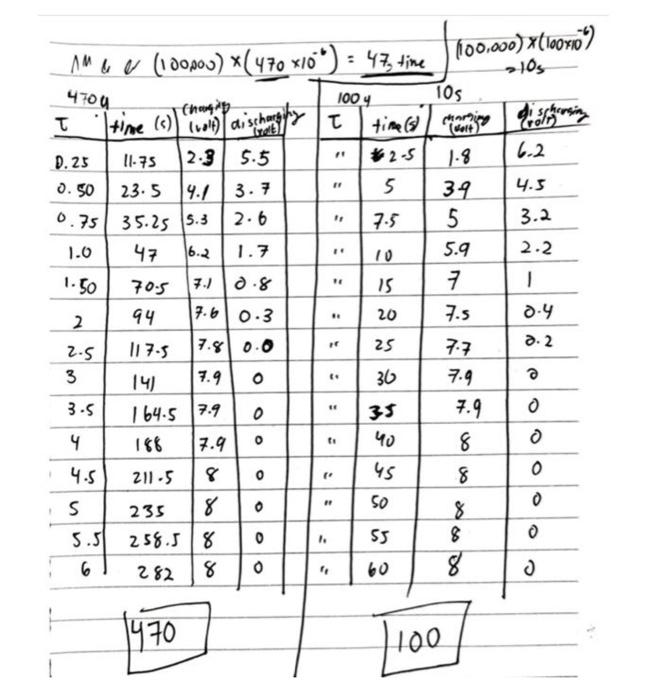 (100,000) × (470 × 10⁻⁶) = 47, time (100,000) × (100×10⁻⁶)
= 10s
470 4 100 4 10s
τ time (s) (charging (volt) discharging (volt) τ time (s) charging (volt) discharging (volt)
0.25 11.75 2.3 5.5 " 2.5 1.8 6.2
0.50 23.5 4.1 3.7 " 5 39 4.5
0.75 35.25 5.3 2.6 " 7.5 5 3.2
1.0 47 6.2 1.7 " 10 5.9 2.2
1.50 70.5 7.1 0.8 " 15 7 1
2 94 7.6 0.3 " 20 7.5 0.4
2.5 117.5 7.8 0.0 " 25 7.7 0.2
3 141 7.9 0 " 30 7.9 0
3.5 164.5 7.9 0 " 35 7.9 0
4 188 7.9 0 " 40 8 0
4.5 211.5 8 0 " 45 8 0
5 235 8 0 " 50 8 0
5.5 258.5 8 0 " 55 8 0
6 282 8 0 " 60 8 0
470 100